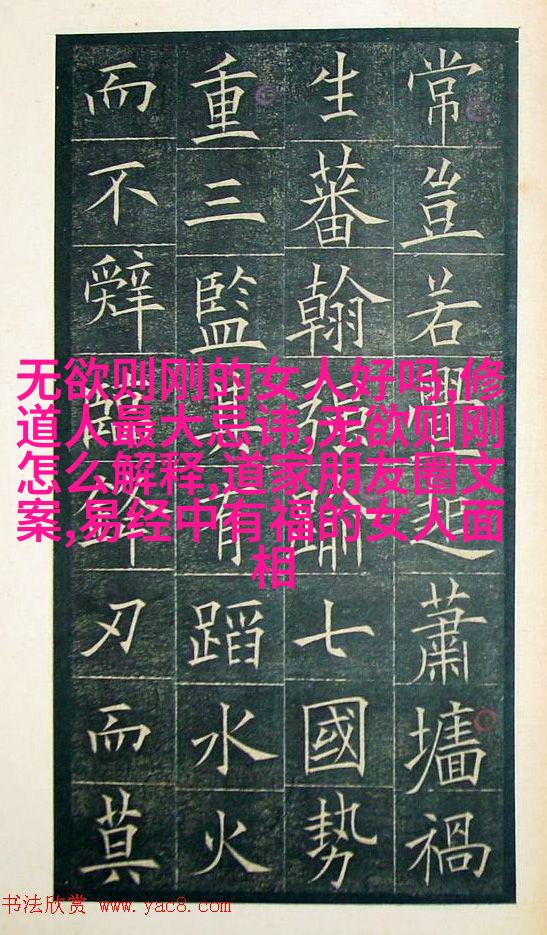 常豈若起蕭墻禍
生蕃翰強踰七國勢
重三監其有蹈水火
而不辭臨鋒刃而莫
无欲则刚的女人好吗,修
道人最大忌讳,无欲则刚
怎么解释,道家朋友圈文
案,易经中有福的女人面
相
书法欣赏 www.yac8.com